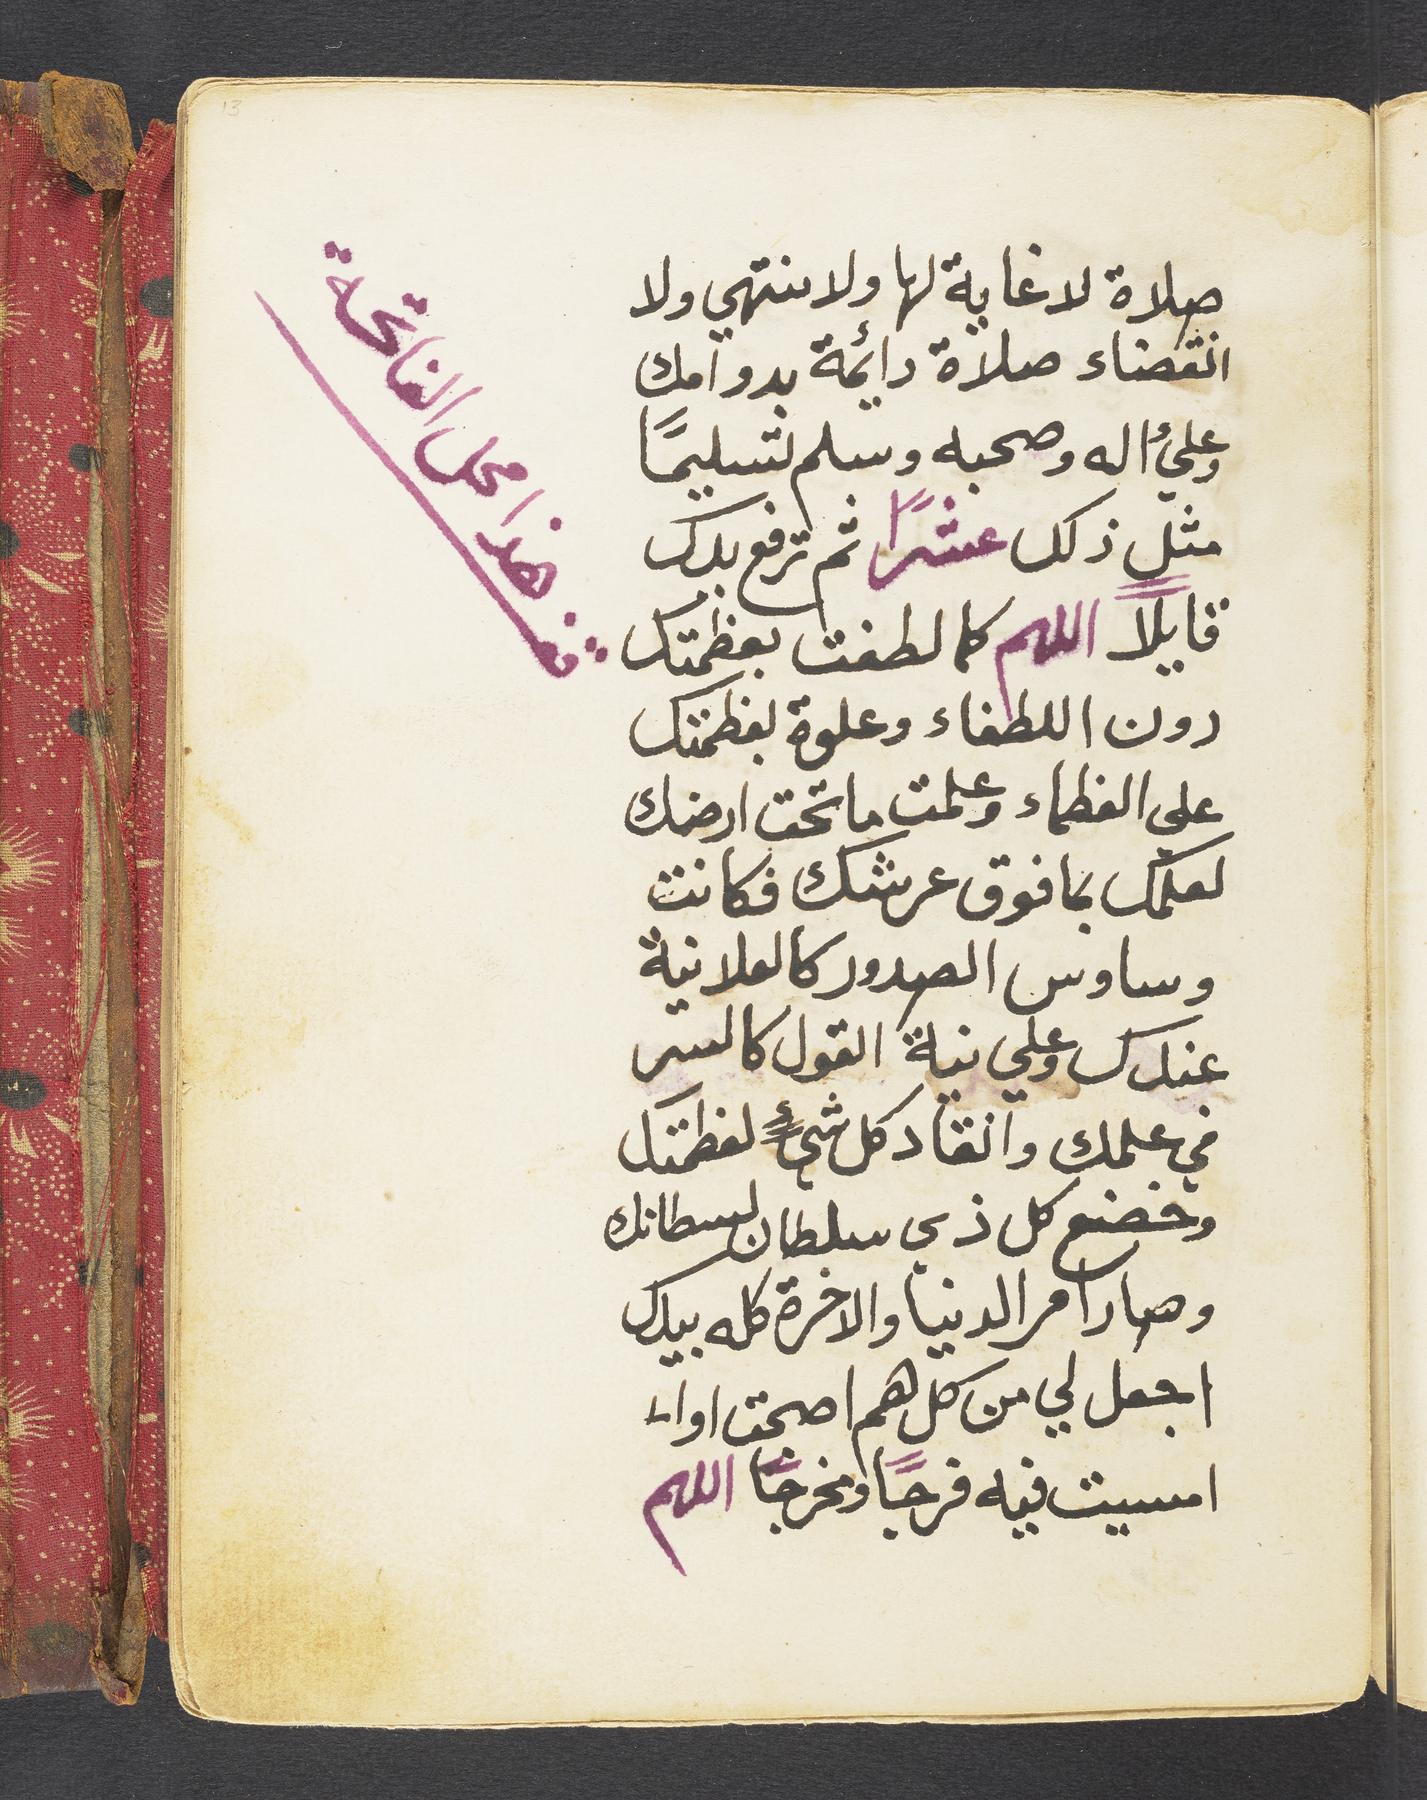 صلاة لا غاية لها ولا منتهي ولا
انقضاء صلاة دائمة بدوامك
وعلي اله وصحبه وسلم تسليمًا
مثل ذلك عشرًا ثم ترفع يدك
قايلاً اللهم كما لطفت بعظمتك
دون اللطفاء وعلوة بعظمتك
علي العظماء وعلمت ما تحت ارضك
كعلمك بما فوق عرشك فكانت
وساوس الصدور كالعلانية
عندك وعلي نية القول كالسر
في علمك وانقاد كل شيءٍ لعظمتك
وخضع كل ذي سلطان لسطانك
وصار امر الدنيا والاخرة كله بيدك
اجعل لي من كل هم اصحت او
امسيت فيه فرجًا ومخرجًا اللهم
هذا محل الفاتحة
13